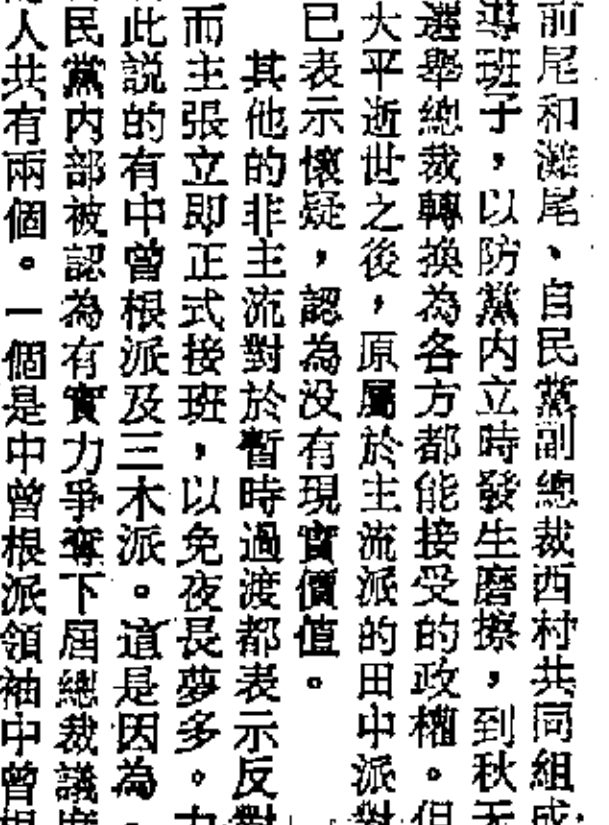 前尾和灘尾、自民黨副總裁西村共同組成
導班子，以防黨内立時發生磨擦，到秋天
選舉總裁轉換為各方都能接受的政權。但
大平逝世之後，原屬於主流派的田中派對
已表示懷疑，認為没有現實價值。
其他的非主流對於暫時過渡都表示反對
而主張立即正式接班，以免夜長夢多。力
此説的有中曾根派及三木派。這是因為，
民黨内部被認為有實力爭奪下屆總裁議席
人共有兩個。一個是中曾根派領袖中曾根